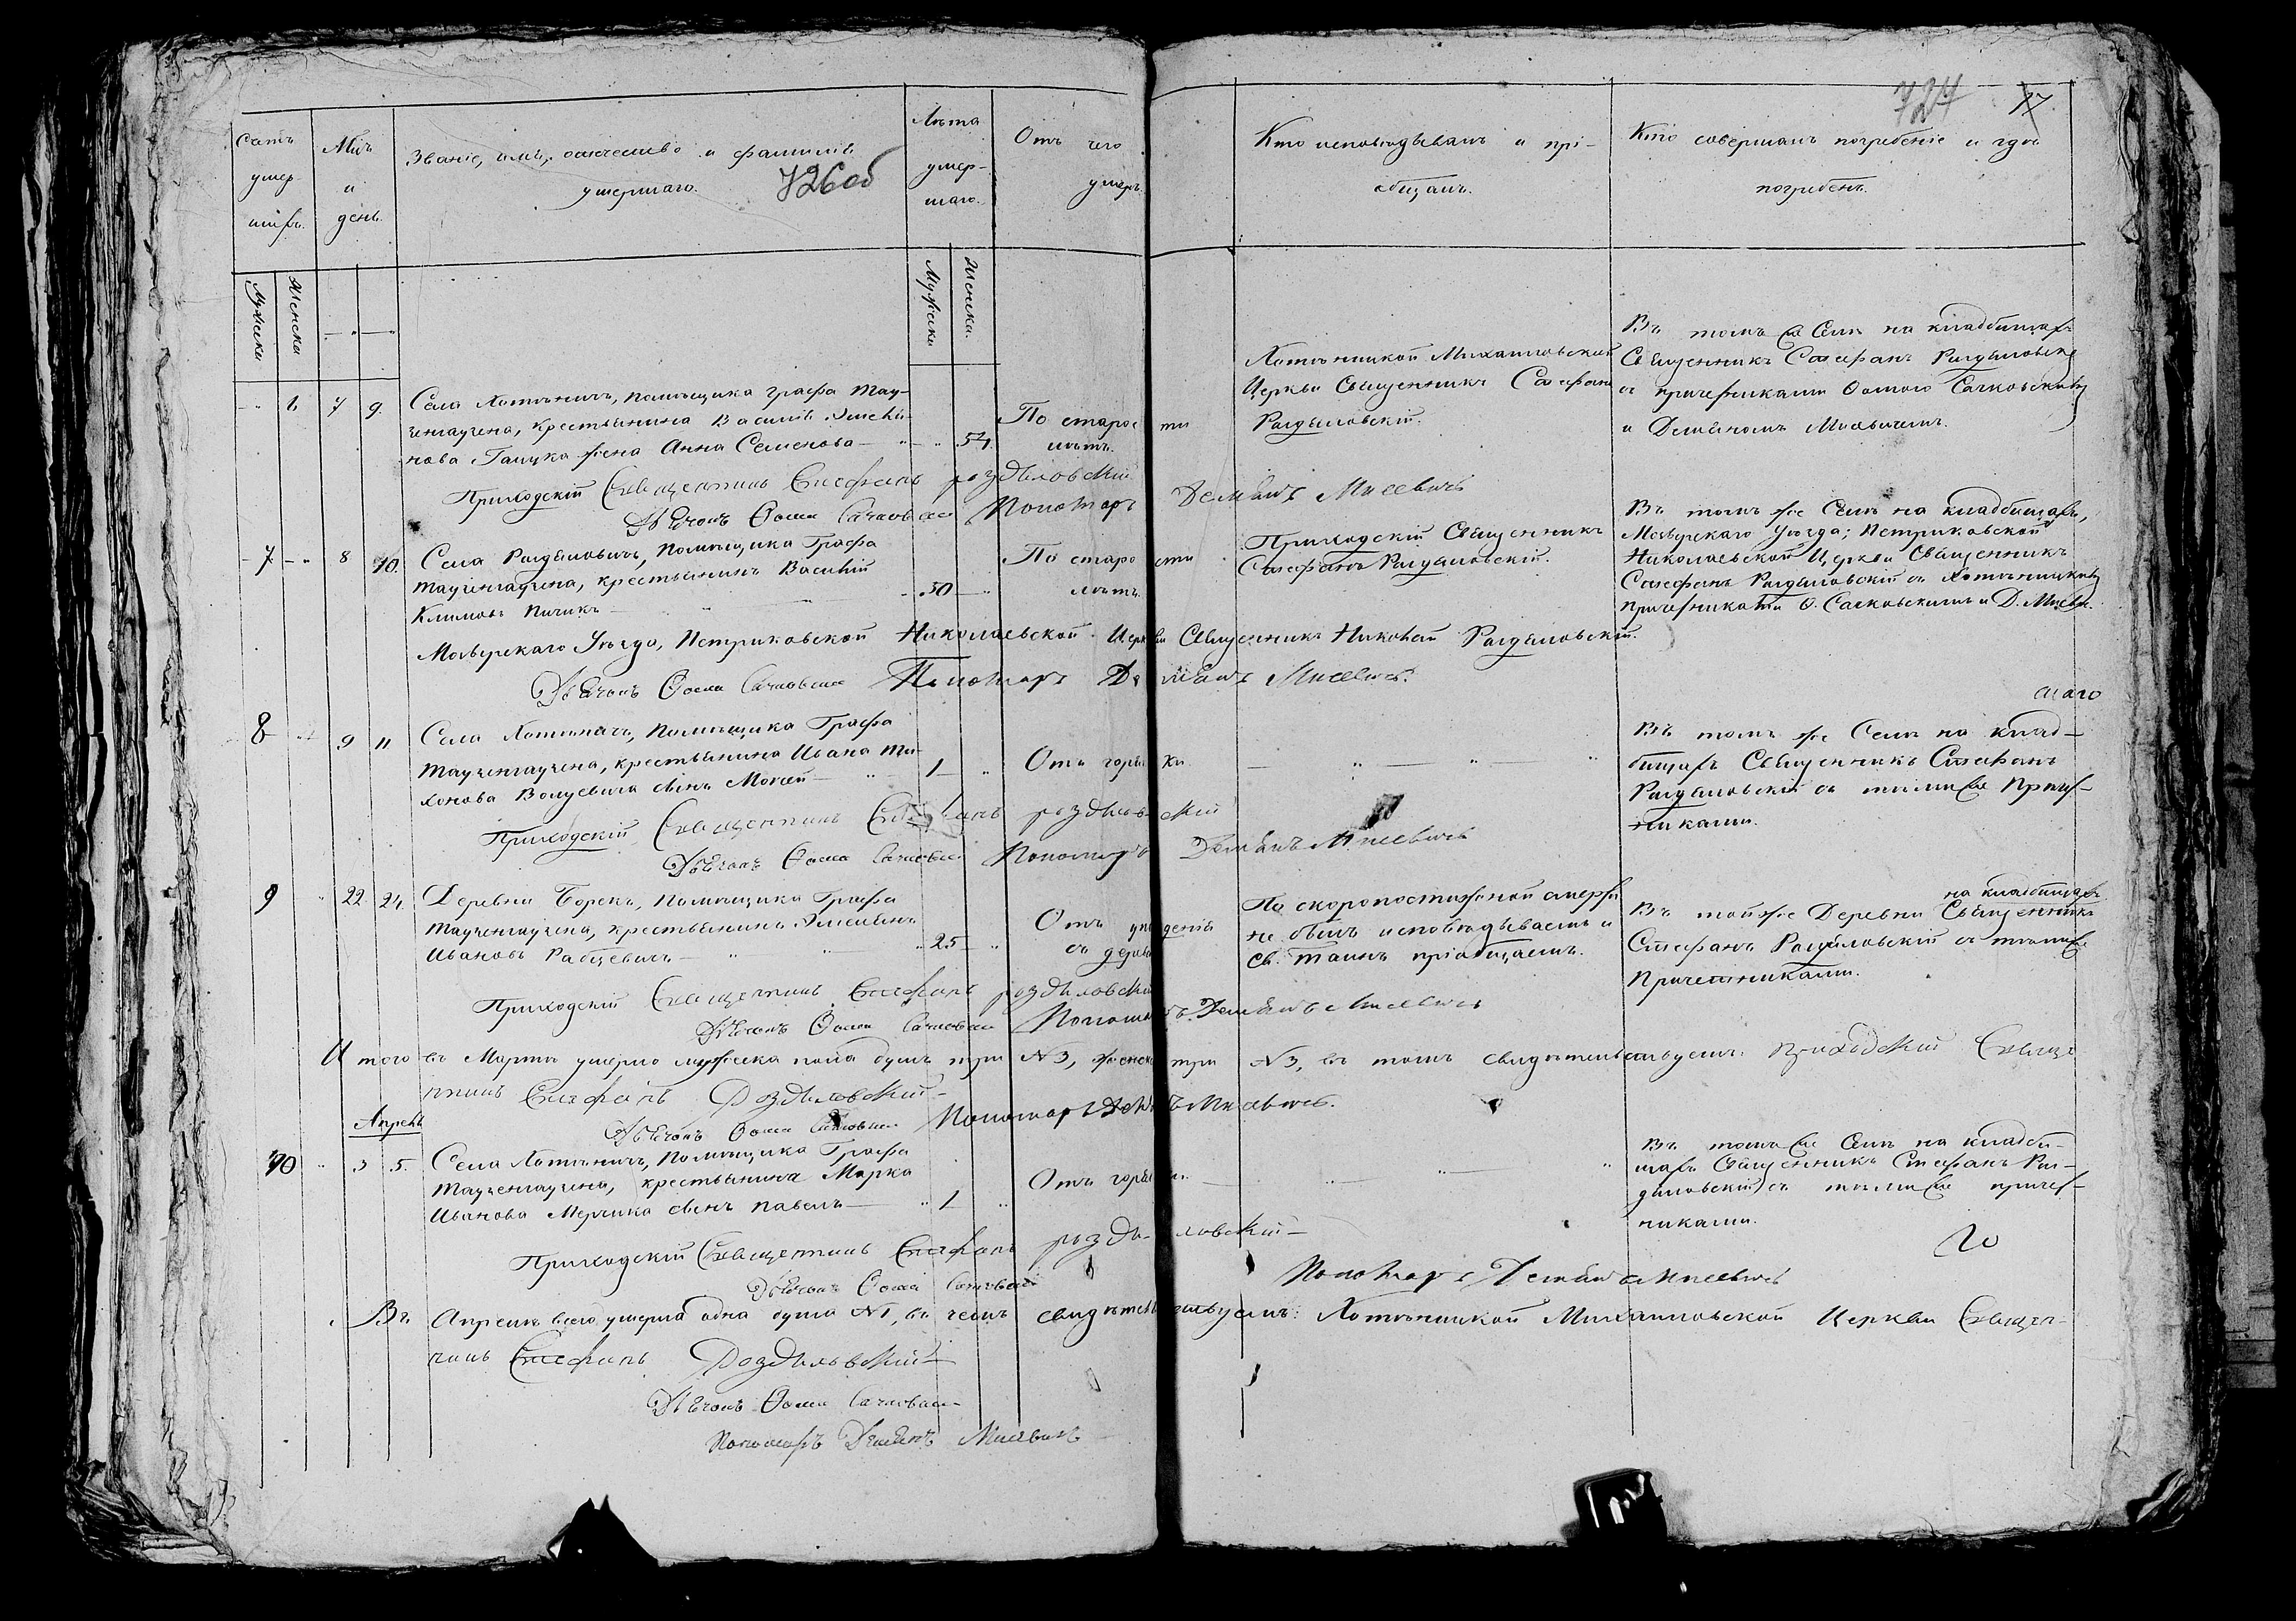 Счетъ умер-шихъ.
Мѣсяцъ и день.
Званіе, имя, отчество и фамилія
умершаго.
726об
Лѣта умер-шаго.
Отъ чего
умеръ.
Кто исповѣдывалъ и прі-
общалъ.
Кто совершалъ погребеніе и гдѣ
погребенъ.
727
17
Мужска
Женска
Мужска
Женска
6 7 9.
Села Хотыничъ, помѣщика графа Тау-
ценгаузена, крестьянина Василія
нова жена Анна Семенова
54.
По старос ти
лѣтъ.
Хотыницкой Михайловской
Церкви Священникъ Стефанъ
Раздяловскій.
Въ томъ же Селѣ на кладбищахъ
Священникъ Стефанъ
съ причетниками Ѳомою Сачковскимъ
и Демьяномъ Мисевичемъ.
Приходскій Священникъ Стефанъ Роздяловскій
Дьячокъ Ѳома Сачковскій Пономарь Демьянъ Мисевичъ
7 8 10.
Села Раздяловичъ, Помѣщика Графа
Тауценгаузена, крестьянинъ Василій
Климовъ
50
По старо сти
лѣтъ
Приходскій Священникъ
Стефанъ Раздяловскій.
Въ томъ же Селѣ на кладбищахъ,
Мозырскаго Уѣзда, Петриковской
Николаевской Церкви Священникъ
Стефанъ Раздяловскій съ Хотыницкими
причетниками Ѳ. Сачковскимъ и Д.
Мозырскаго Уѣзда, Петриковской Николаевской Церкви Священникъ Николай Раздяловскій.
Дьячокъ Ѳома Сачковскій Пономарь Демьянъ Мисевичъ.
8 9 11
Села Хотыничъ, Помѣщика Графа
Тауценгаузена, крестьянина Ивана Ти-
хонова сынъ
1
Отъ горяч ки
Въ томъ же Селѣ на клад-
бищахъ Священникъ Стефанъ
Раздяловскій съ тѣми же Причет-
никами.
Приходскій Священникъ Стефанъ Роздяловскій
Дьячокъ Ѳома Сачковскій Пономарь Демьянъ Мисевичъ
9 22 24.
Деревни Борокъ, Помѣщика Графа
Тауценгаузена, крестьянинъ
Ивановъ Рабцевичъ
25
Отъ упа денія
съ дерева
По скоропостижной смерти
не былъ исповѣдываемъ и
Св. Таинъ пріобщаемъ.
на кладбищахъ
Въ той же Деревни Священникъ
Стефанъ Раздяловскій съ тѣми же
Причетниками.
Приходскій Священникъ Стефанъ Роздяловскій
Дьячокъ Ѳома Сачковскій Пономарь Демьянъ Мисевичъ
Итого въ Мартѣ умерло мужеска пола душъ три №3, женска три №3, въ томъ свидѣтельствуемъ: Приходскій Свяще
нникъ Стефанъ Роздяловскій
Дьячокъ Ѳома Сачковскій Пономарь Мисевичъ.
Апрель
10 3 5.
Села Хотыничъ, Помѣщика Графа
Тауценгаузена, крестьянина Марка
Иванова сынъ Павелъ
1
Отъ горяч ки.
Въ томъ же Селѣ на кладби-
щахъ Священникъ Стефанъ Раз-
дяловскій съ тѣми же причет-
никами.
Приходскій Священникъ Стефанъ Роздя-ловскій
Дьячокъ Ѳома Сачковскій
Пономарь Демьянъ Мисевичъ
Въ Апрелѣ всего умерла одна душа №1, въ чемъ свидѣтельствуемъ: Хотыницкой Михайловской Церкви Священ-
никъ Стефанъ Роздяловскій
Дьячокъ Ѳома Сачковскій
Пономарь Демьянъ Мисевичъ